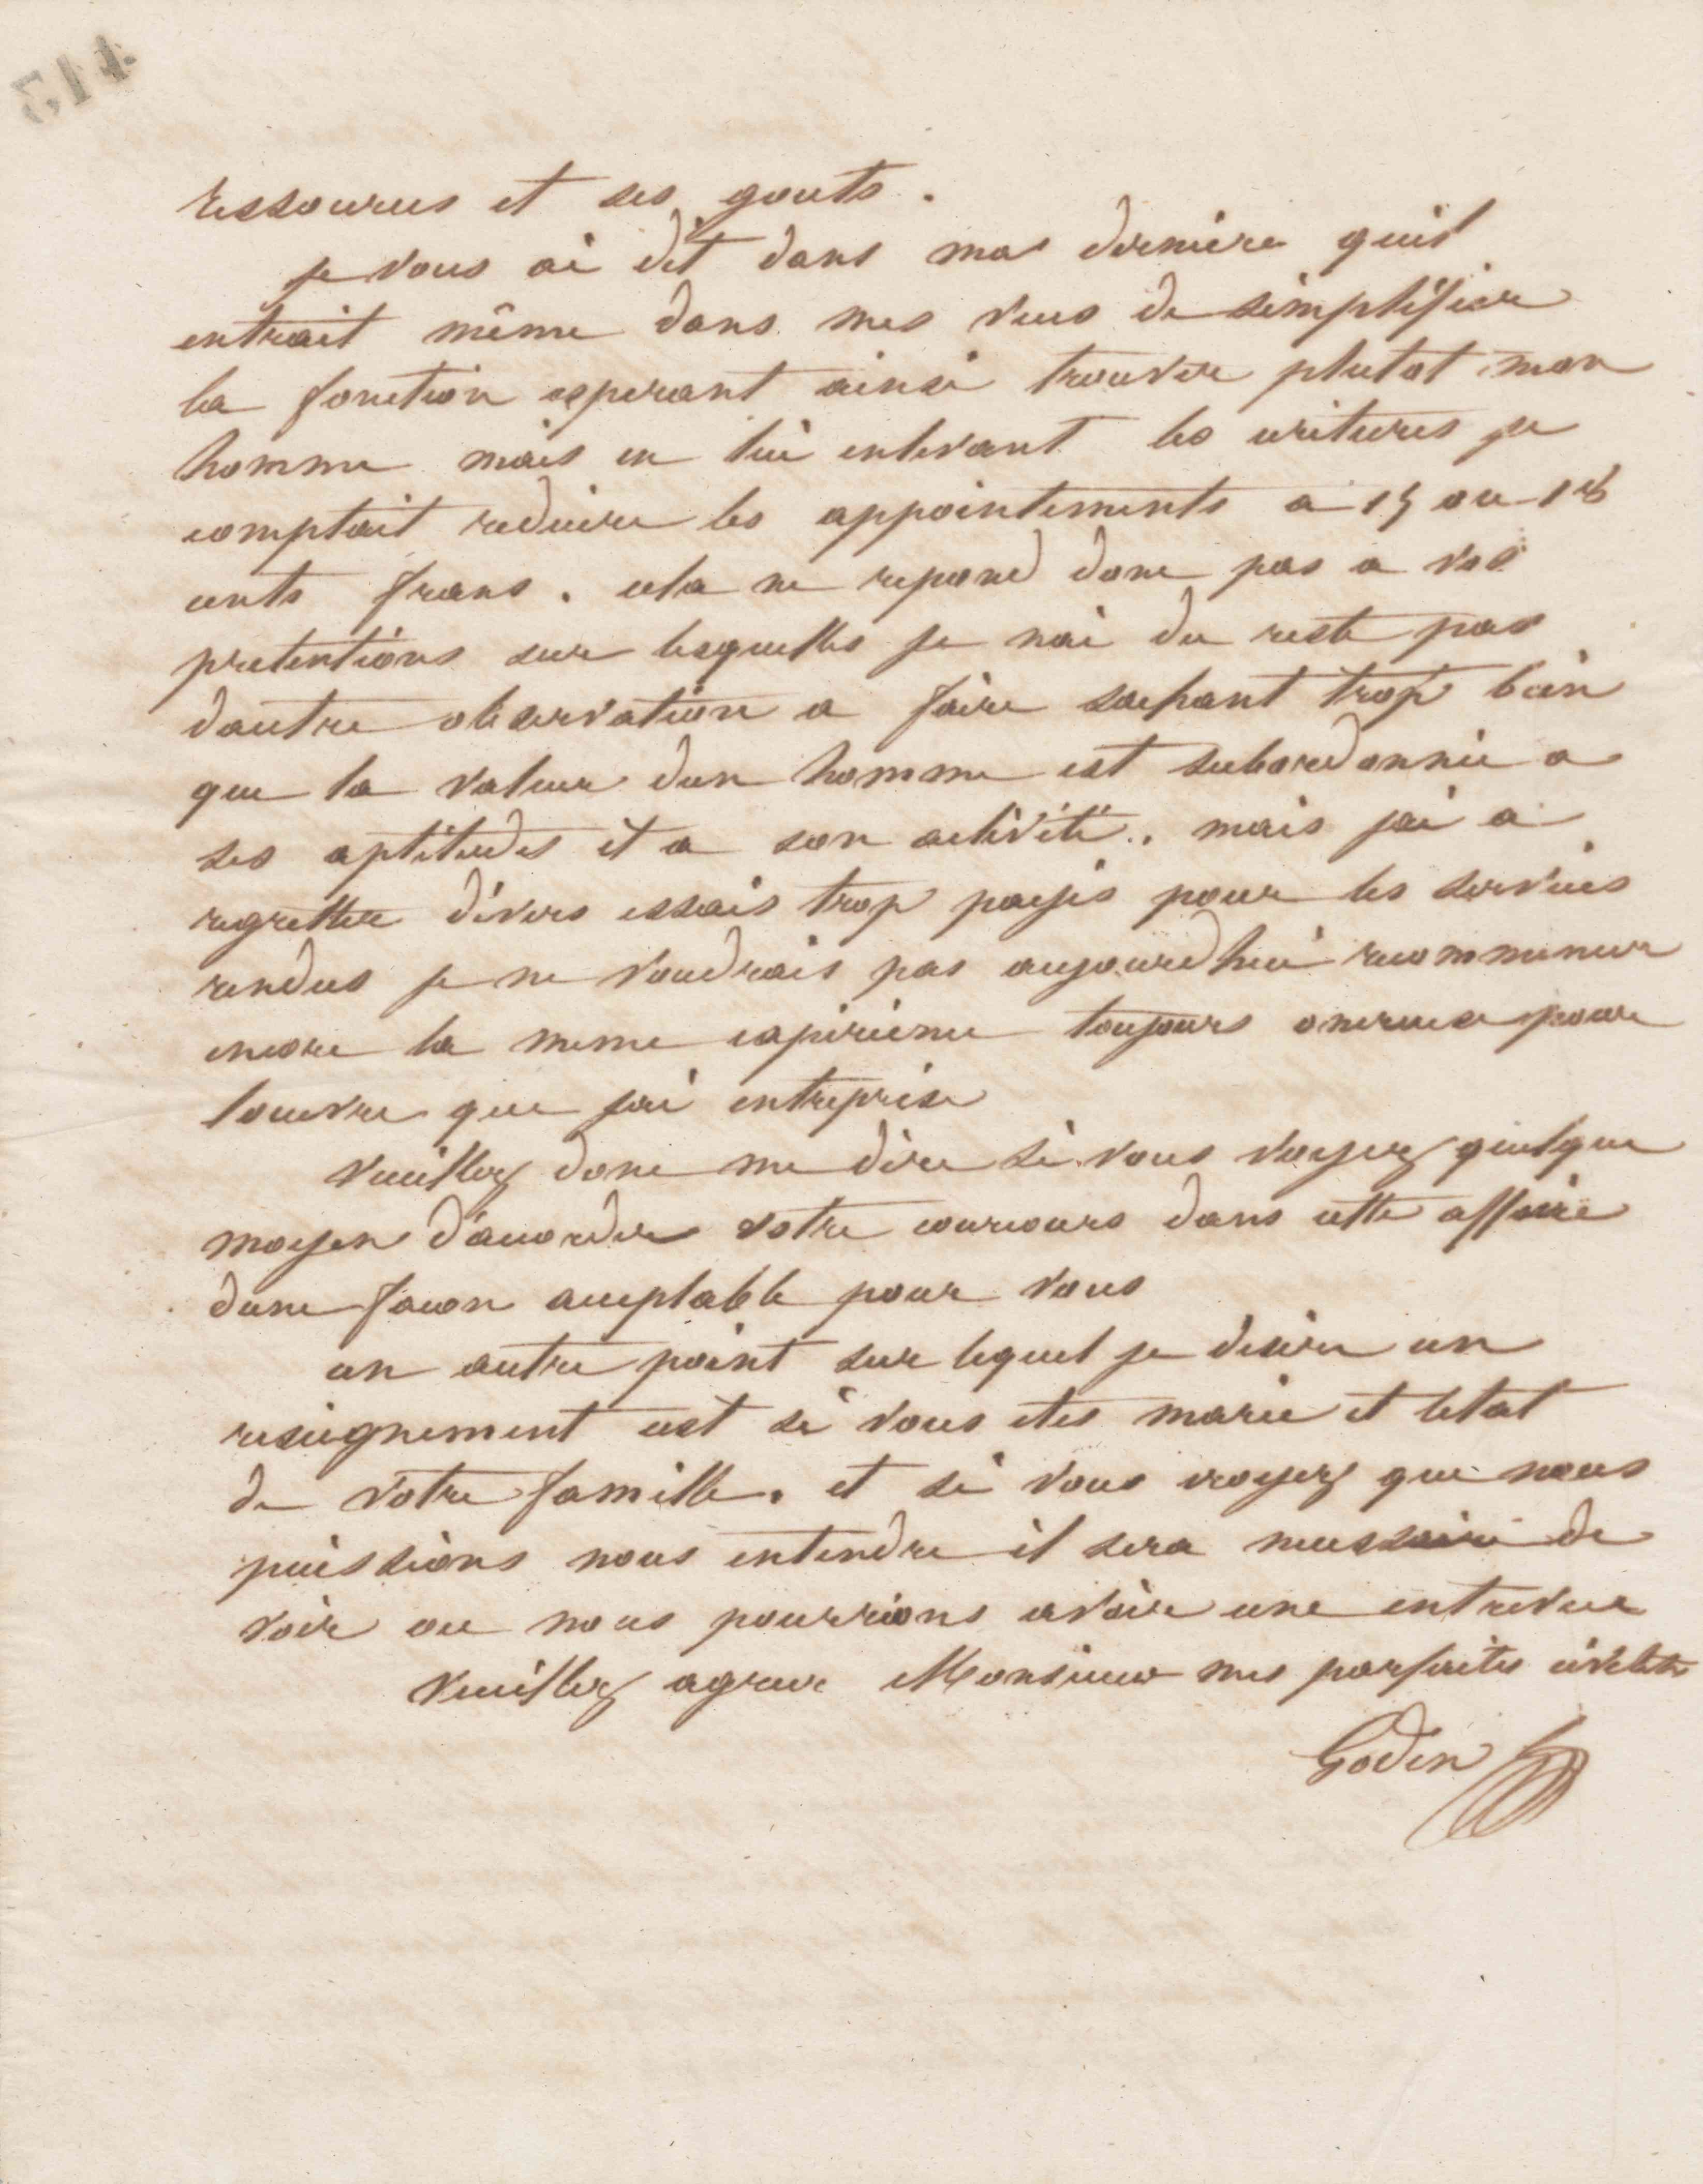 514
ressources et ses gouts.
je vous ai dit dans ma dernière quil
entrait même dans mes vues de simplifier
la fonction esperant ainsi trouver plutot mon
homme mais en lui enlevant les ecritures je
comptait reduire les appointements a 15 ou 18
cents francs. cela ne repond donc pas a vos
pretentions sur lesquelles je nai du reste pas
dautre observation a faire sachant trop bien
que la valeur dun homme est subordonnée a
ses aptitudes et a son activité. mais jai a
regretter divers essais trop payés pour les services
rendus je ne voudrais pas aujourdhui recommencer
encore la meme expérience toujours onereuse pour
louvre que jai entreprise
Veuillez donc me dire si vous voyez quelque
moyen d'accorder votre concours dans cette affaire
dune facon acceptable pour vous
un autre point sur lequel je désire un
reseignement cest si vous etes marié et letat
de votre famille. et si vous croyez que nous
puissions nous entendre il sera necessaire de
voir ou nous pourrions avoir une entrevue
Veuillez agreer Monsieur mes parfaites civilités
Godin